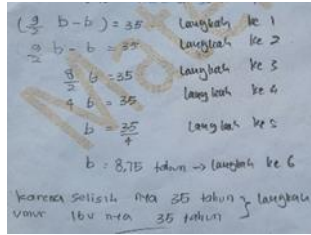 (9/2 b - b) = 35 Langkah ke 1
9/2 b - b = 35 Langkah ke 2
8/2 b = 35 Langkah ke 3
4 b = 35 Langkah ke 4
b = 35/4 Langkah ke 5
b = 8,75 tahun → Langkah ke 6
Karena selisih nya 35 tahun } Langkah
umur Ibu nya 35 tahun